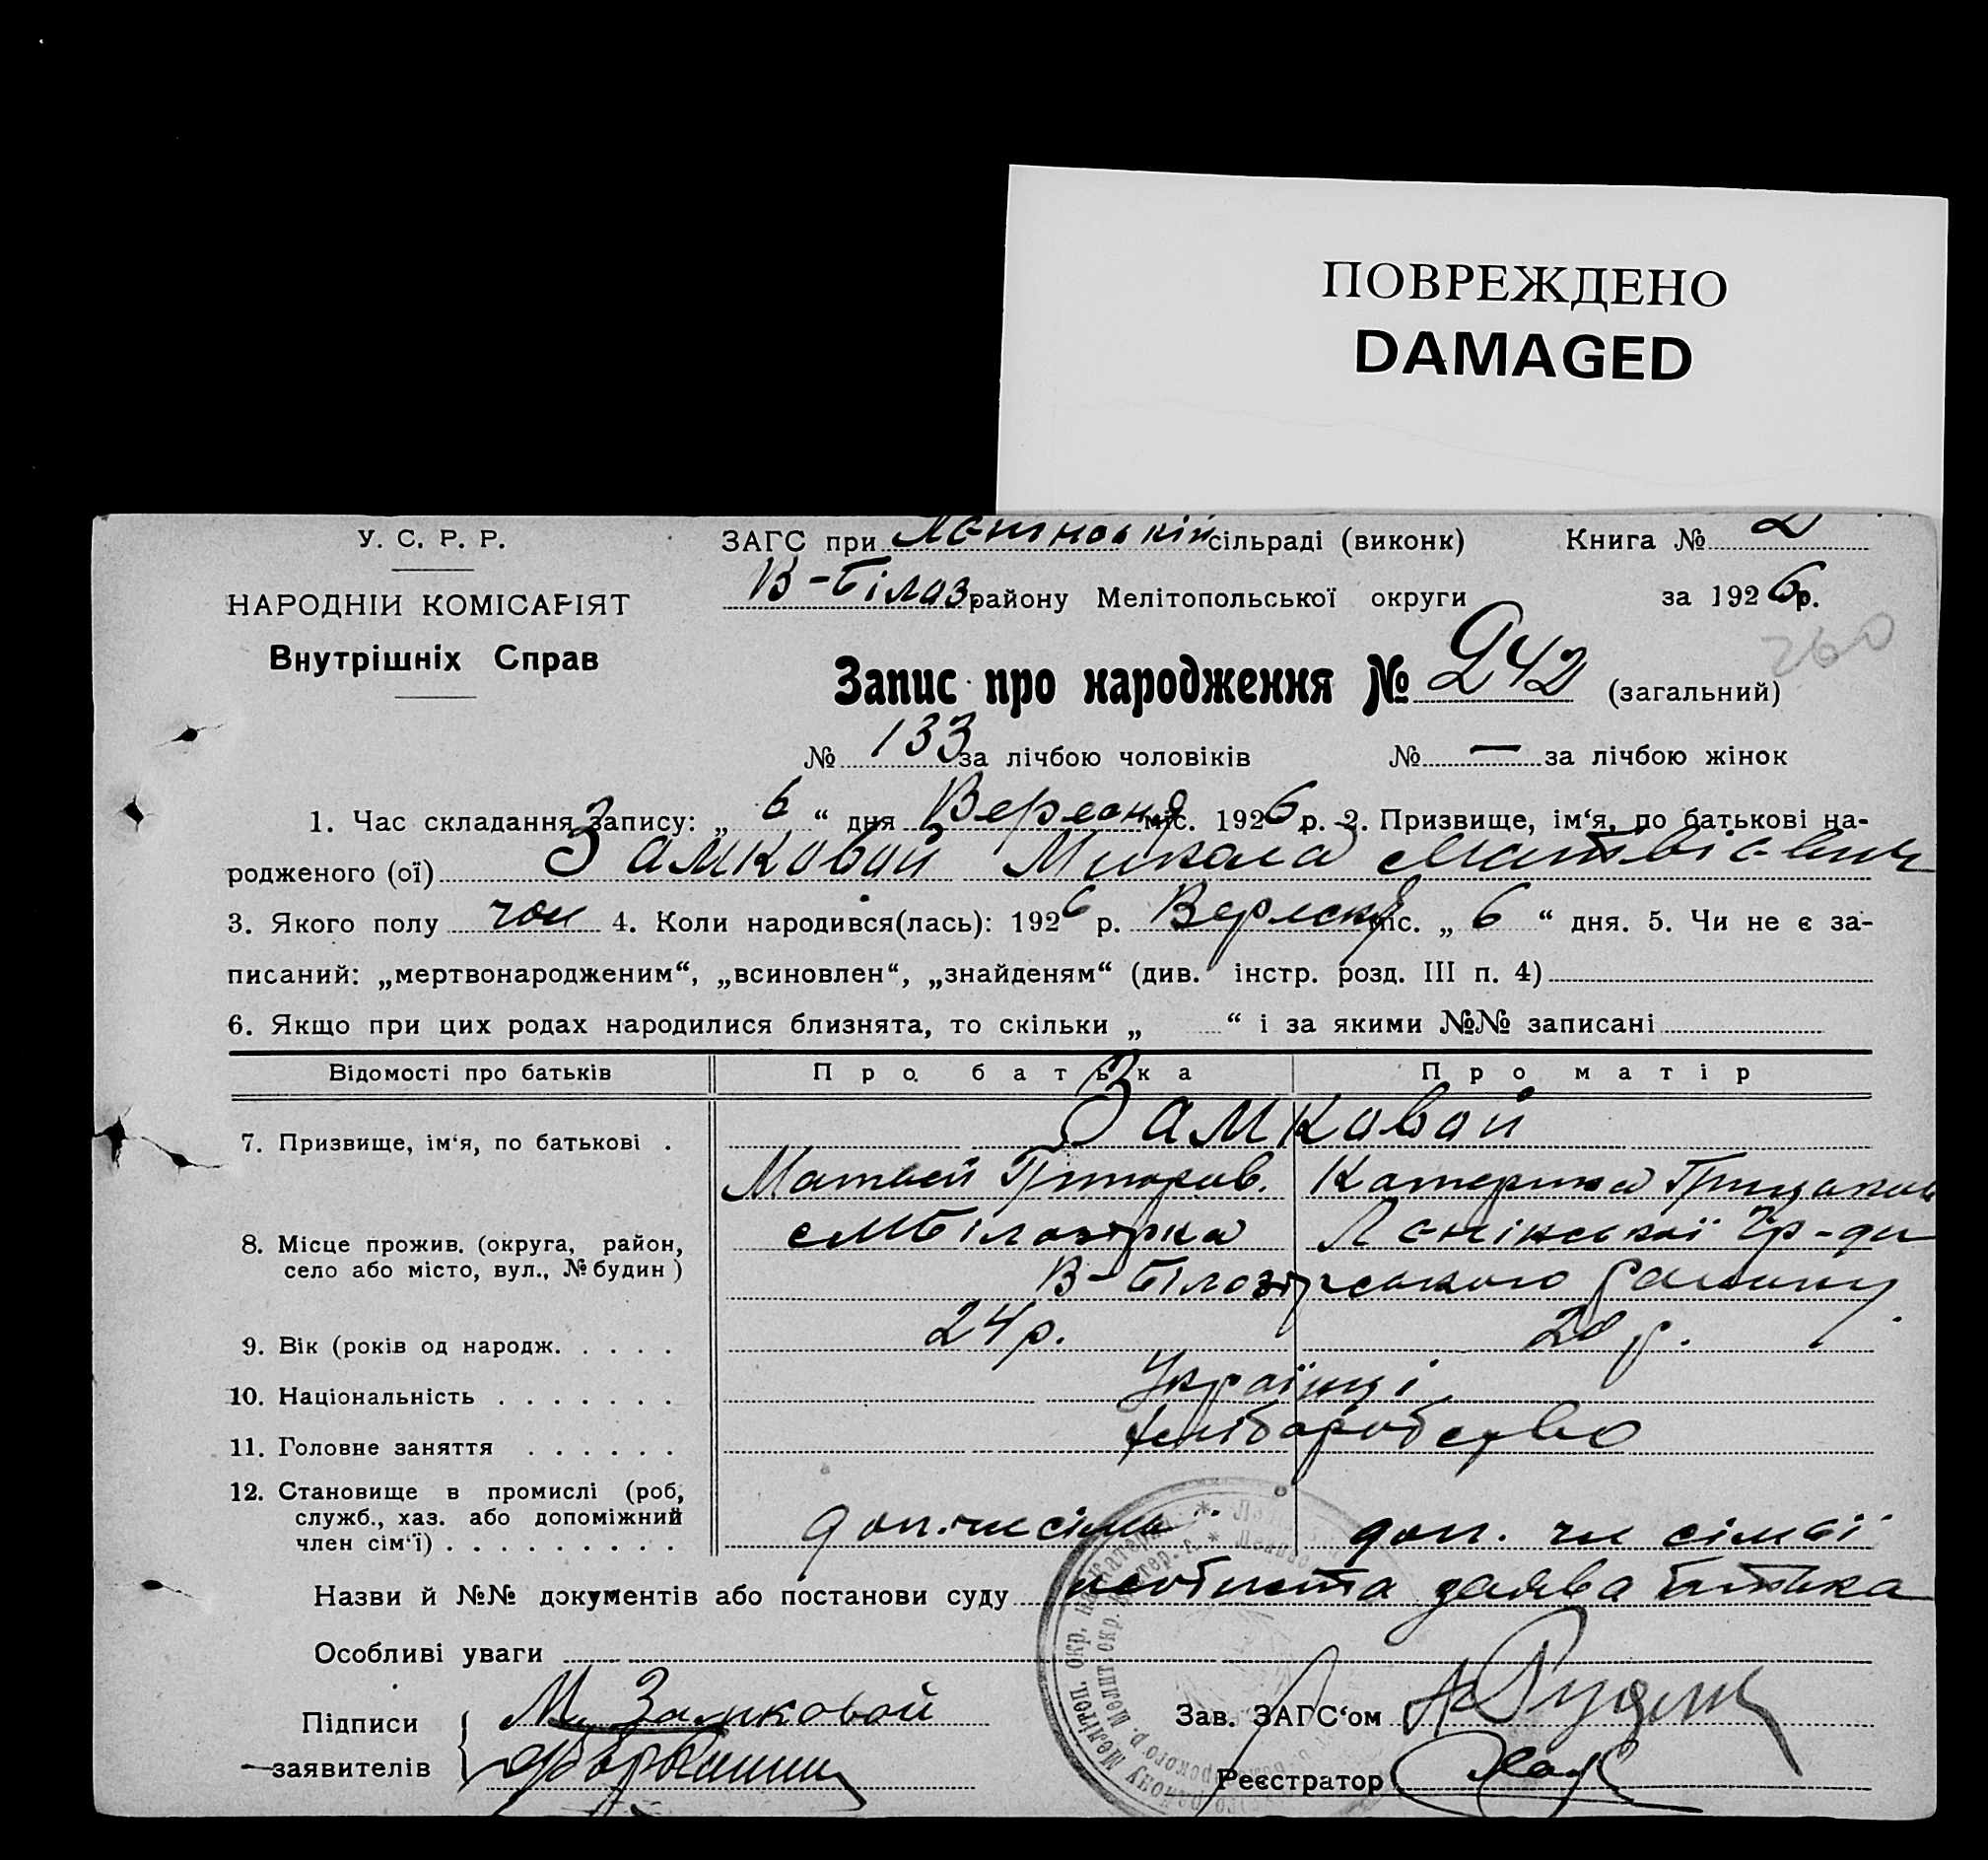 ПОВРЕЖДЕНО
DAMAGED
У. С. Р. Р.
НАРОДНІЙ КОМІСАРІЯТ
Внутрішніх Справ
ЗАГС при Ленінській сільраді (виконк) Книга № 2
В-Білоз. району Мелітопольської округи за 1926 р.
260
Запис про народження № 242 (загальний)
№ 133 за лічбою чоловіків № — за лічбою жінок
1. Час складання запису: „ 6 “ дня Вересня міс. 1926 р. 2. Призвище, ім‘я, по батькові на-
родженого (ої) Замковой Микола Матвієвич
3. Якого полу чол 4. Коли народився(лась): 1926 р. Вересня міс. „ 6 “ дня. 5. Чи не є за-
писаний: „мертвонародженим“, „всиновлен“, „знайденям“ (див. інстр. розд. III п. 4)
6. Якщо при цих родах народилися близнята, то скільки „ “ і за якими №№ записані
Відомості про батьків Про батька Про матір
7. Призвище, ім‘я, по батькові . Замковой
Матвей Григоров. Катерина
8. Місце прожив. (округа, район, село або місто, вул., № будин) Білозірка Ленінської гр-ди
В-Білозірського району
9. Вік (років од народж. . . . . 24 р. 20 р.
10. Національність . . . . . . . Українці
11. Головне заняття . . . . . . хліборобство
12. Становище в промислі (роб, служб., хаз. або допоміжний член сім‘ї) . . . . . . . . . доп. чл сімьї доп. чл сімьї
Назви й №№ документів або постанови суду особиста заява батька
Особливі уваги
Підписи М. Замковой Зав. ЗАГС‘ом
заявителів Реєстратор